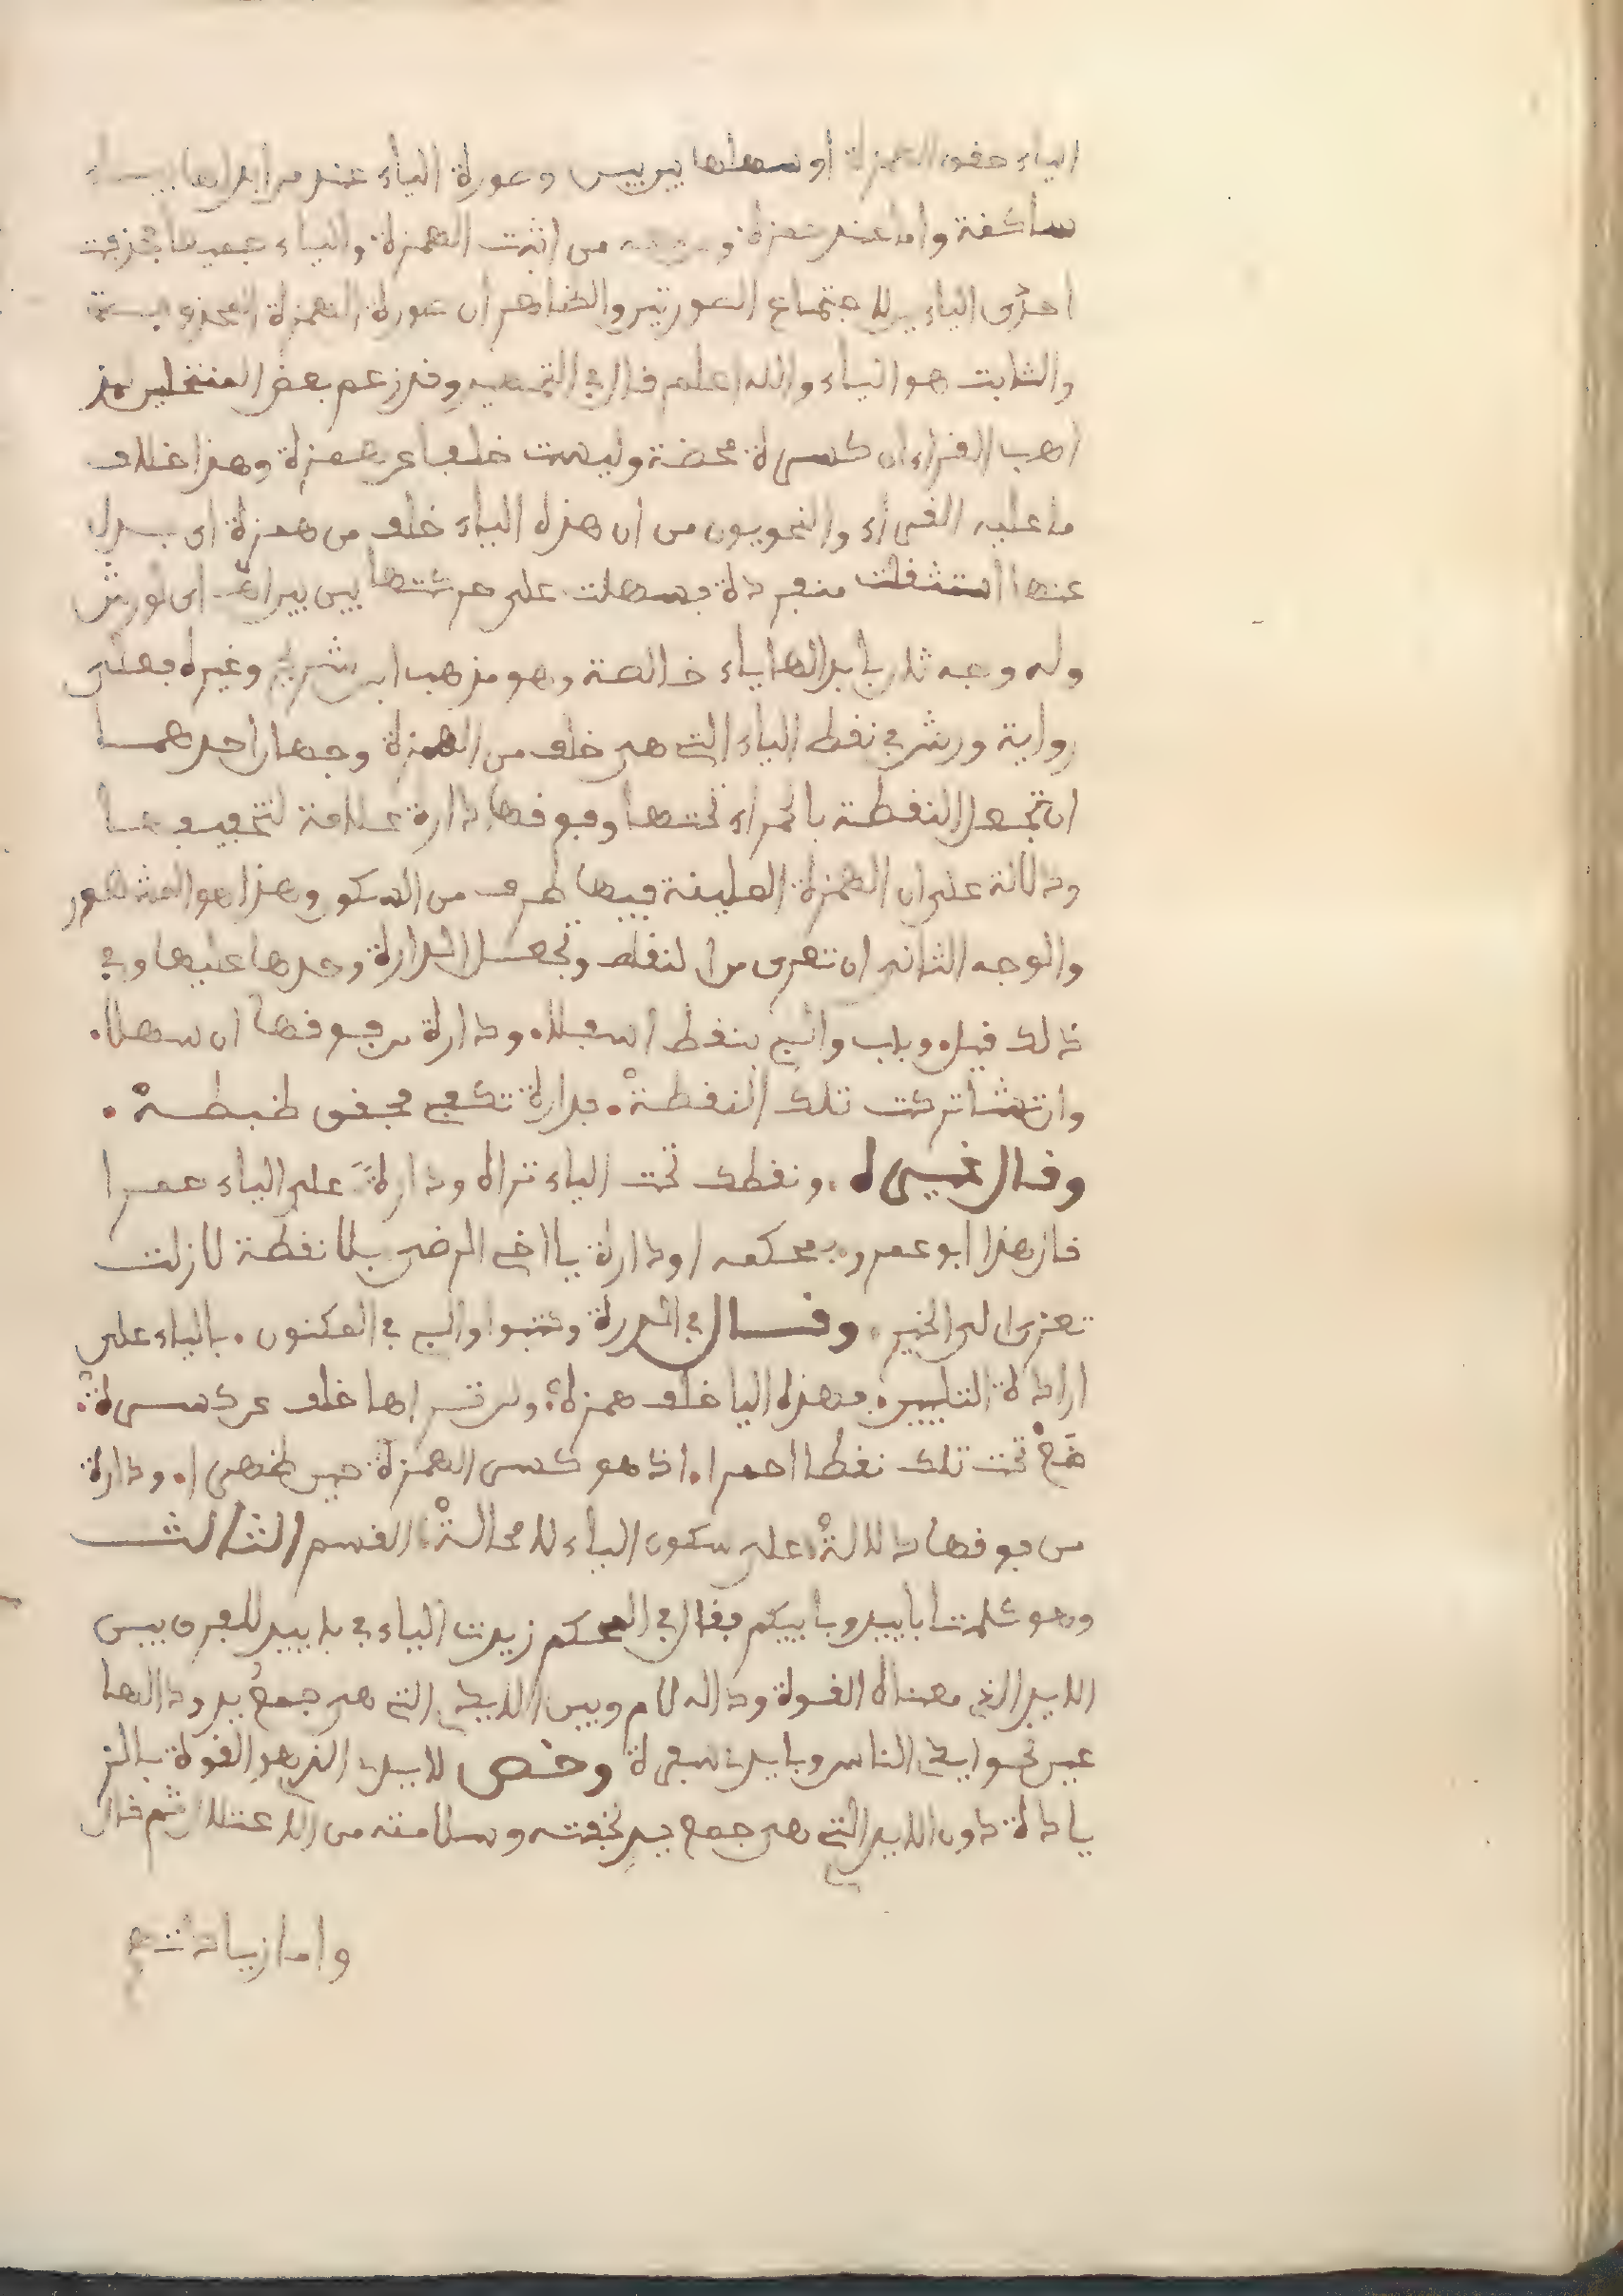 الياء حقق الهمزة او سهلها بين بين وصورة الياء عند من ابدلها بياء
ساكنة واما عند همزة من اثبت الهمزة والياء جميعا فحذفت
احدى الياءين لاجتماع الصورتين والظاهر ان صورة الهمزة المحذوفة
والثابت هو الياء والله اعلم قال في التمهيد وقد زعم بعض المنتحلين مذ
اهب القراء ان كسرة محضة وليست خلفا عن همزة وهذا خلاف
ما عليه القراء والنحويون من ان هذه الياء خلف من همزة اى بدل
عنها استثقلت منفردة فسهلت على حركتها بين بين اهـ اى لورش
وله وجه ثان بابدالها ياء خالصة وهو مذهب ابن شريح وغيره فعلى
رواية ورش في نقط الياء التي هي خلف من الهمزة وجهان احدهما
ان تجعل النقطة بالحمراء تحتها وفوقها دارة علامة لتخفيفها
ودلالة على ان الهمزة الملينة فيها طرف من السكون وهذا هو المشهور
والوجه الثاني ان تعرى من النقط وتجعل الدارة وحدها عليها وفي
ذلك قيل وباب والئ بنقط اسفلا ودارة من فوقها ان سهلا
وان تشا تركت تلك النقطة فدارة تكفي فحقق ضبطه
وقال غيره ونقطك تحت الياء تراه ودارة على الياء حمرا
قاز هذا ابو عمرو بمحكمه او دارة يا اخي المرضي بلا نقطة لازلت
تعزى الى الخير وقال في الدررة وكتبوا والئ في المكنون بالياء على
ارادة التليين فهذه اليا خلف همزة ولن تراها خلف عن كسرة
ضع تحت تلك نقطا احمرا اذ هو كسر الهمزة حين ظهرا ودارة
من فوقها دلالة على سكون الياء لا محالة القسم الثالث
وهو كلمتا باييد وباييكم فقال في المحكم زيدت الياء في باييد للفرق بين
الايد الذي معناه القوة وداله لام وبين الايدي التي هي جمع يد ودالها
عين نحو ايدي الناس وبايدي سفرة وخص الايد الذي هو القوة بالز
يادة دون الايدي التي هي جمع يد لخفته وسلامته من الاعتلال ثم قال
واما زيادتهم